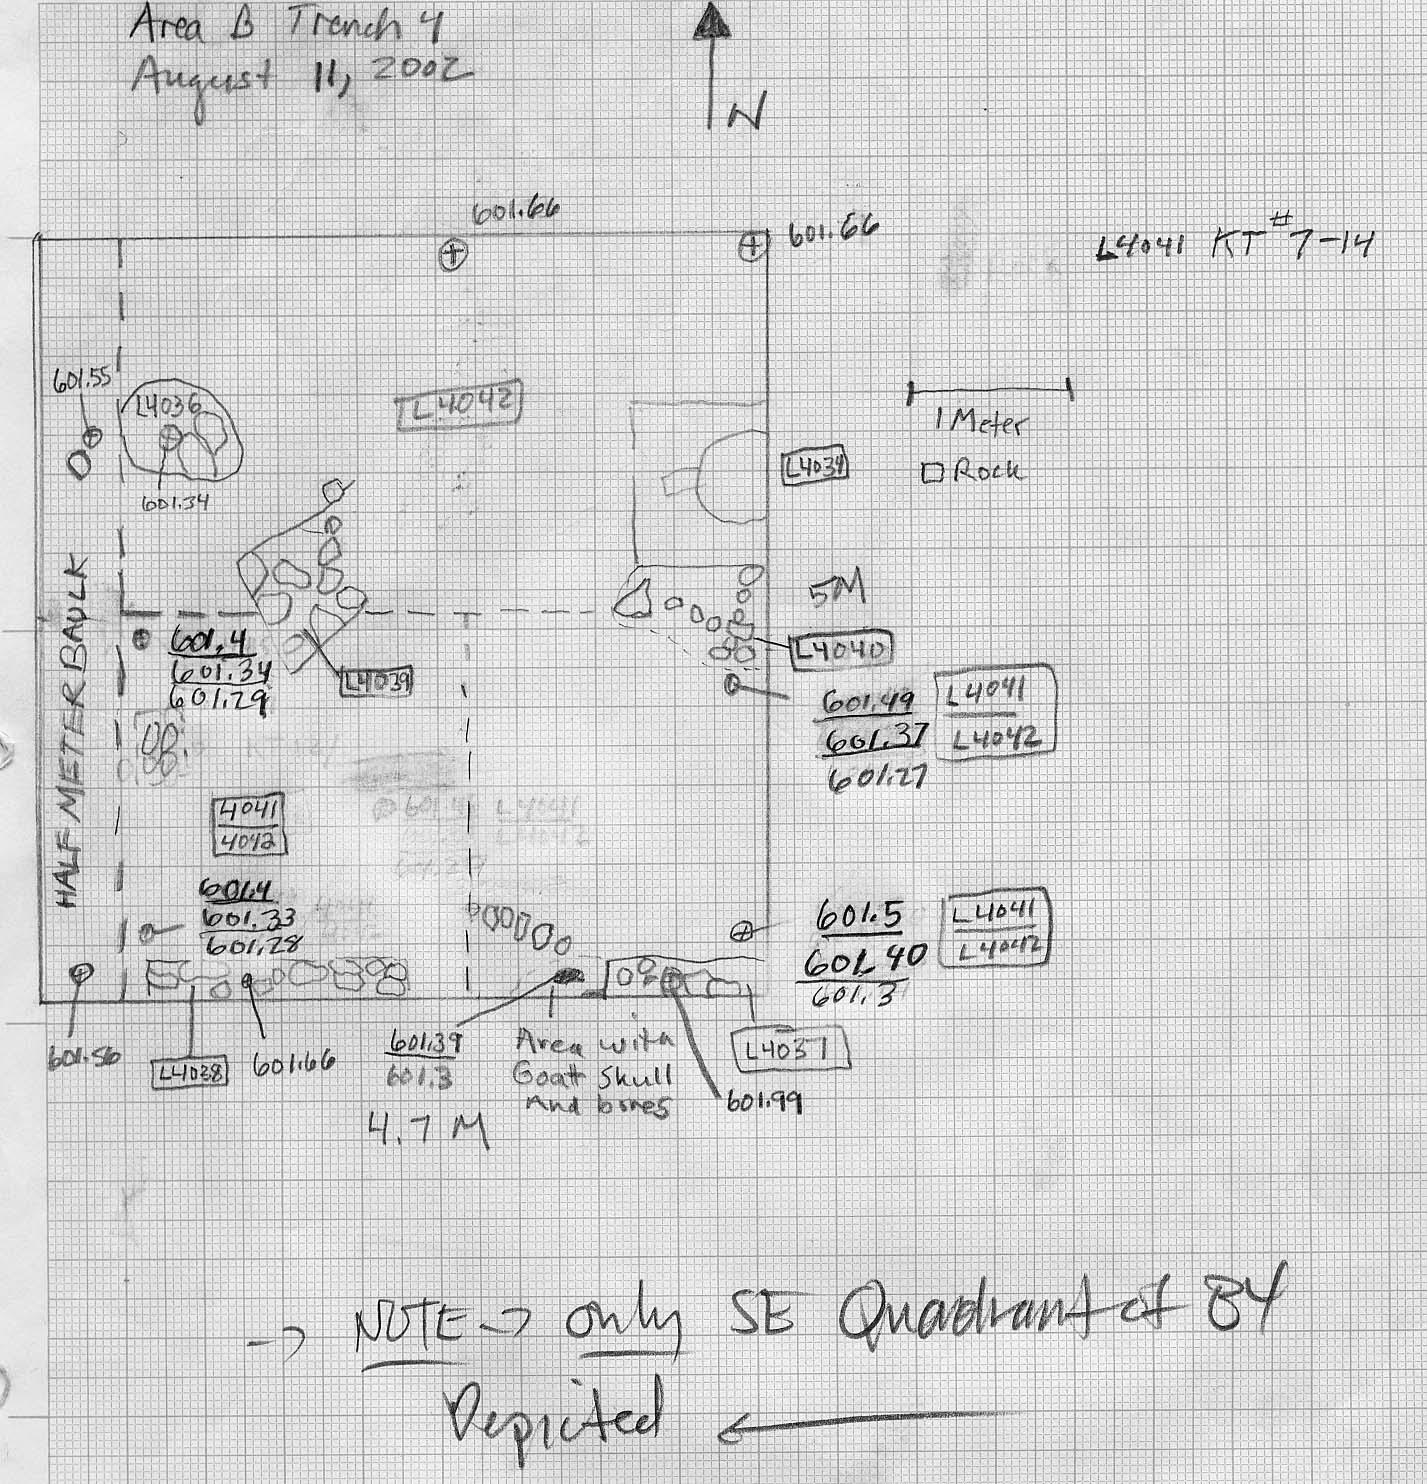 Area B Trench 4
August 11, 2002
N
601.66
601.66
L4041 KT #7-14
601.55
L4036
601.34
L4042
1 Meter
Rock
L4034
HALF METER BAULK
5M
601.4
601.34
601.29
L4039
L4040
601.49
601.37
601.27
L4041
L4042
4041
4042
601.4
601.33
601.28
601.5
601.40
601.3
L4041
L4042
601.56
L4038
601.66
601.39
601.3
4.7 M
Area with
Goat Skull
And bones
L4037
601.99
-> NOTE -> only SE Quadrant of B4
Depicted